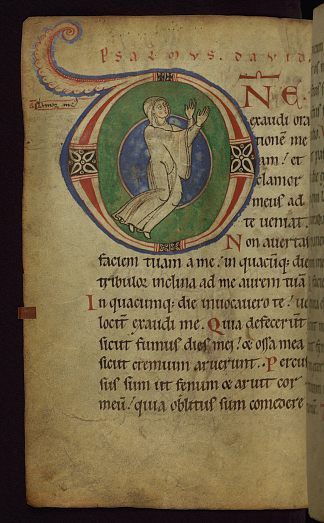 PSALMVS. DAVID
DNE.
exaudi ora
tionē me
am! et
clamor
meus ad
te veniat.
Non avertas
faciem tuam a me! in quacūq; die
tribulor inclina ad me aurem tuā
In quacumq; die invocavero te! ve
locit exaudi me. Quia defecerūt
sicut fumus dies mei! & ossa mea
sicut cremium aruerunt. Percus
sus sum ut fenum & aruit cor
meū! quia oblitus sum comedere